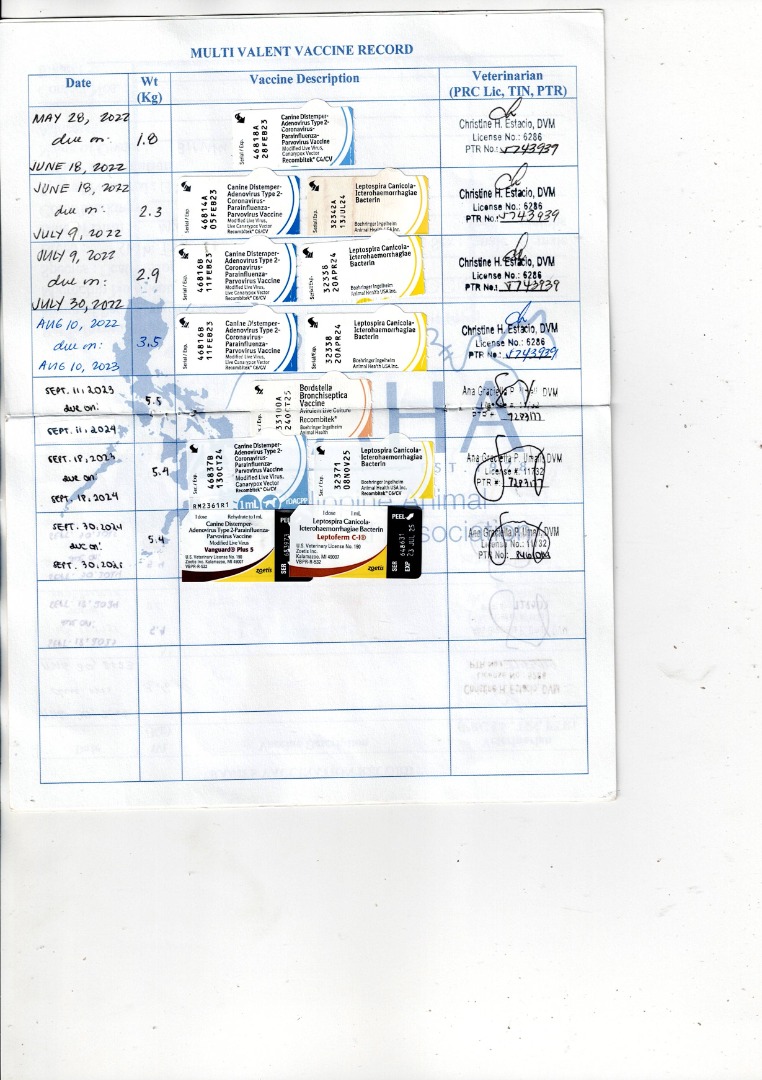 MULTI VALENT VACCINE RECORD
Date
Wt
(Kg)
Vaccine Description
Veterinarian
(PRC Lic, TIN, PTR)
MAY 28, 2022
due on:
JUNE 18, 2022
1.8
Serial / Exp.
46818A
28FEB23
Canine Distemper-
Adenovirus Type 2-
Coronavirus-
Parainfluenza-
Parvovirus Vaccine
Modified Live Virus,
Canarypox Vector
Recombitek® C6/CV
Christine H. Estacio, DVM
License No.: 6286
PTR No.: 5743939
JUNE 18, 2022
due on:
JULY 9, 2022
2.3
Serial / Exp.
46814A
05FEB23
Canine Distemper-
Adenovirus Type 2-
Coronavirus-
Parainfluenza-
Parvovirus Vaccine
Modified Live Virus,
Live Canarypox Vector
Recombitek® C6/CV
Serial/Exp.
32342A
13JUL24
Leptospira Canicola-
Icterohaemorrhagiae
Bacterin
Boehringer Ingelheim
Animal Health USA Inc.
Christine H. Estacio, DVM
License No.: 6286
PTR No.: 5743939
JULY 9, 2022
due on:
JULY 30, 2022
2.9
Serial / Exp.
46816B
11FEB23
Canine Distemper-
Adenovirus Type 2-
Coronavirus-
Parainfluenza-
Parvovirus Vaccine
Modified Live Virus,
Live Canarypox Vector
Recombitek® C6/CV
Serial/Exp.
32338
20APR24
Leptospira Canicola-
Icterohaemorrhagiae
Bacterin
Boehringer Ingelheim
Animal Health USA Inc.
Christine H. Estacio, DVM
License No.: 6286
PTR No.: 5743939
AUG 10, 2022
due on:
AUG 10, 2023
3.5
Serial / Exp.
46816B
11FEB23
Canine Distemper-
Adenovirus Type 2-
Coronavirus-
Parainfluenza-
Parvovirus Vaccine
Modified Live Virus,
Live Canarypox Vector
Recombitek® C6/CV
Serial/Exp.
32338
20APR24
Leptospira Canicola-
Icterohaemorrhagiae
Bacterin
Boehringer Ingelheim
Animal Health USA Inc.
Christine H. Estacio, DVM
License No.: 6286
PTR No.: 5743939
SEPT. 11, 2023
due on:
SEPT. 11, 2024
5.5
33100A
24OCT25
Bordetella
Bronchiseptica
Vaccine
Avirulent Live Culture
Recombitek®
Boehringer Ingelheim
Animal Health
DVM
7283177
SEPT. 18, 2023
due on:
SEPT. 18, 2024
5.4
Serial / Exp.
46837B
13OCT24
Canine Distemper-
Adenovirus Type 2-
Coronavirus-
Parainfluenza-
Parvovirus Vaccine
Modified Live Virus,
Canarypox Vector
Recombitek® C6/CV
RM2361R1
1mL
32371
08NOV25
Leptospira Canicola-
Icterohaemorrhagiae
Bacterin
Boehringer Ingelheim
Animal Health USA Inc.
Recombitek® C6/CV
Ana Graciella P. Umali, DVM
License #: 11732
PTR #: 7283177
SEPT. 30, 2024
due on:
SEPT. 30, 2025
5.4
1 dose Rehydrate to 1 mL
Canine Distemper-
Adenovirus Type 2-Parainfluenza-
Parvovirus Vaccine
Modified Live Virus
Vanguard® Plus 5
U.S. Veterinary License No. 190
Zoetis Inc.
Kalamazoo, MI 49007
VBPR-R-532
zoetis
SER
1 dose 1 mL
Leptospira Canicola-
Icterohaemorrhagiae Bacterin
Leptoferm C-I®
U.S. Veterinary License No. 190
Zoetis Inc.
Kalamazoo, MI 49007
VBPR-R-532
zoetis
PEEL
SER 648631
EXP 25
Ana Graciella P. Umali, DVM
License No.: 11732
PTR No.: